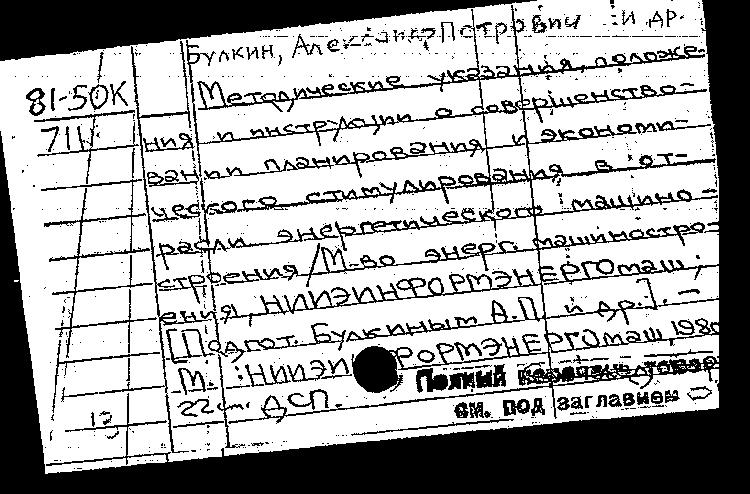 Булкин, Александр Петрович и др.
81-50К
Методические указания, положе-
711
ния и инструкции о совершенство-
вании планирования и экономи-
ческого стимулирования в от-
расли энергетического машино-
строения / М-во энерг. машиностро-
ения, НИИЭИНФОРМЭНЕРГОмаш;
[Подгот. Булкиным А.П. и др.]. —
М. : НИИЭИНФОРМЭНЕРГОмаш, 198
22 см. ДСП.
Полный
см. под заглавием